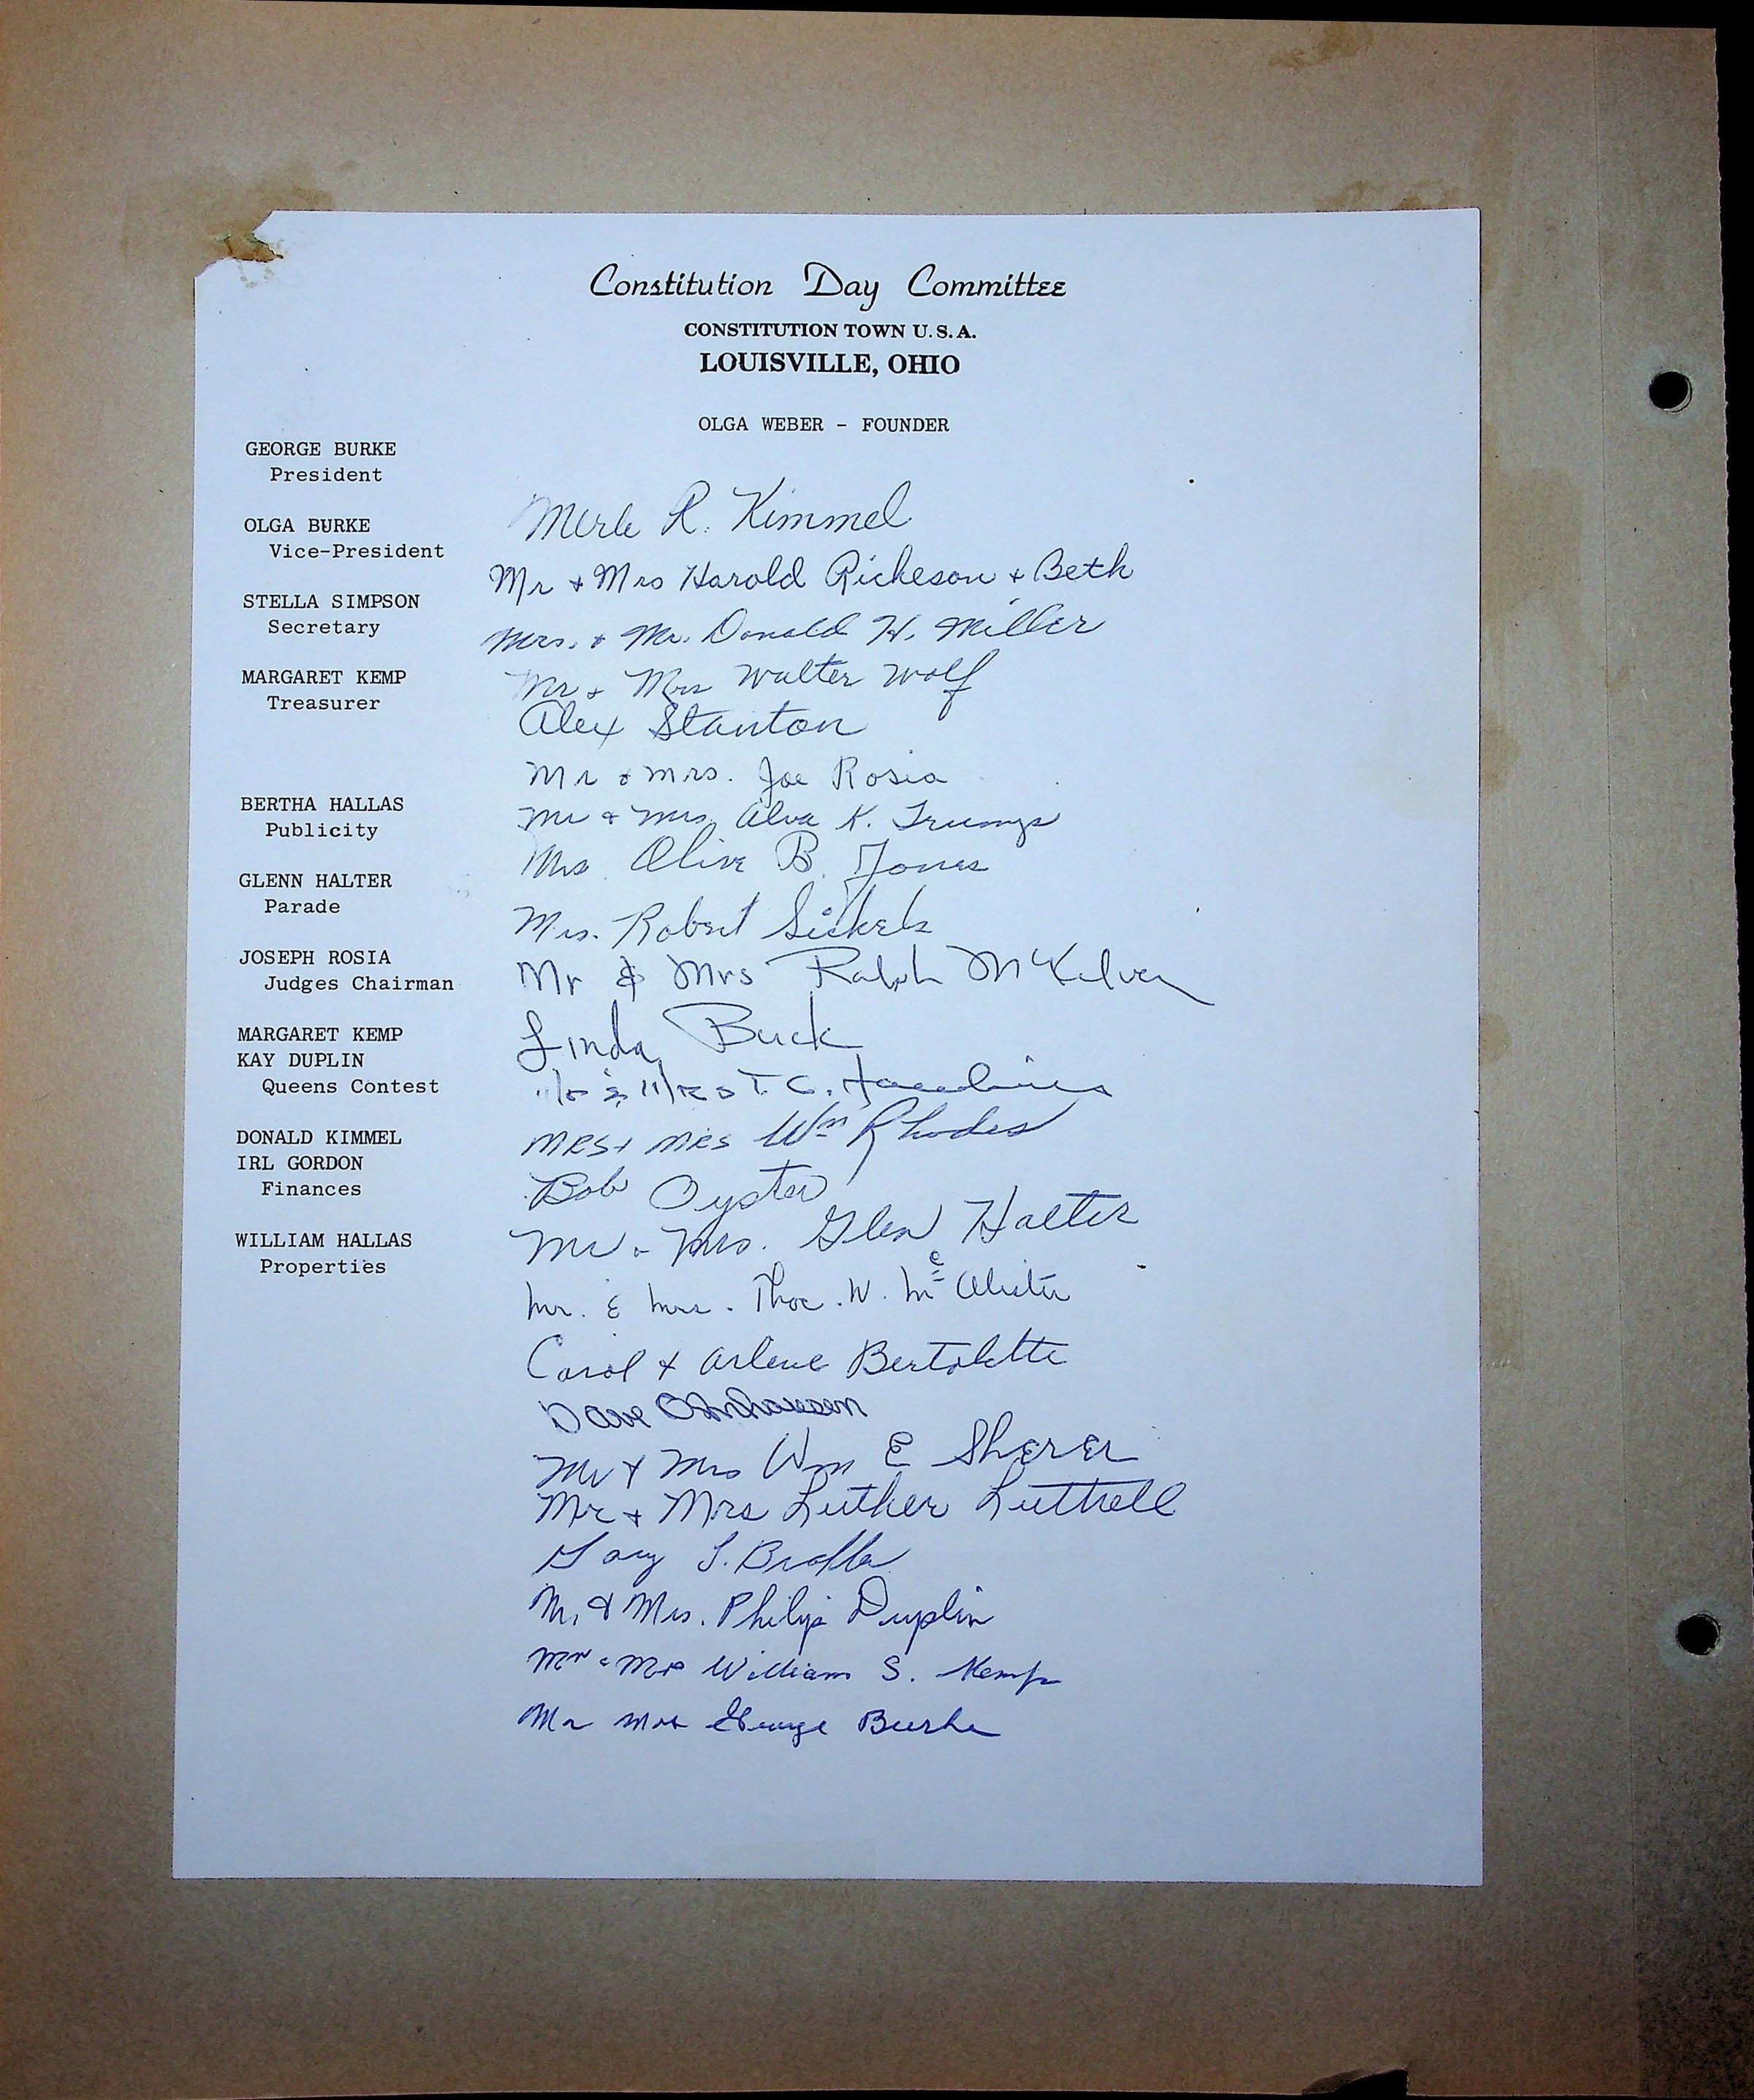 Constitution Day Committee
CONSTITUTION TOWN U.S.A.
LOUISVILLE, OHIO
OLGA WEBER - FOUNDER
GEORGE BURKE
President
OLGA BURKE
Vice-President
STELLA SIMPSON
Secretary
MARGARET KEMP
Treasurer
BERTHA HALLAS
Publicity
GLENN HALTER
Parade
JOSEPH ROSIA
Judges Chairman
MARGARET KEMP
KAY DUPLIN
Queens Contest
DONALD KIMMEL
IRL GORDON
Finances
WILLIAM HALLAS
Properties
Merle R. Kimmel
Mr + Mrs Harold Richeson + Beth
Mrs. + Mr. Donald H. Miller
Mr + Mrs Walter Wolf
Alex Stanton
Mr & Mrs. Joe Rosia
Mr & Mrs. Alva K.
Mrs. Olive B. Jones
Mrs. Robert Sickels
Mr & Mrs Ralph McKelvey
Linda Buck
T. C.
MRS + MRS Wm Rhodes
Bob Oyster
Mr & Mrs. Glen Halter
Mr. & Mrs. Thos. W.
Carol + Arlene Bertolette
Dave
Mr + Mrs Wm E Sherer
Mr + Mrs Luther Luttrell
Gary
Mr. & Mrs. Philip Duplin
Mr & Mrs William S. Kemp
Mr Mrs George Burke